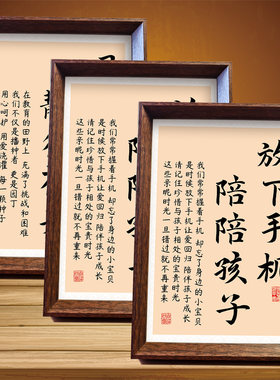 在教育的田野上 充满了挑战和困难
我们不仅是播种者 更是园丁
用心呵护 用爱浇灌 每一颗种子
我们常常握着手机 却忘了身边的小宝贝
是时候放下手机 让爱回归 陪伴孩子成长
请记住 珍惜与孩子相处的宝贵时光
这些亲昵时光一旦错过就不再重来
放下手机
陪陪孩子
我们常常握着手机 却忘了身边的小宝贝
是时候放下手机 让爱回归 陪伴孩子成长
请记住 珍惜与孩子相处的宝贵时光
这些亲昵时光一旦错过就不再重来